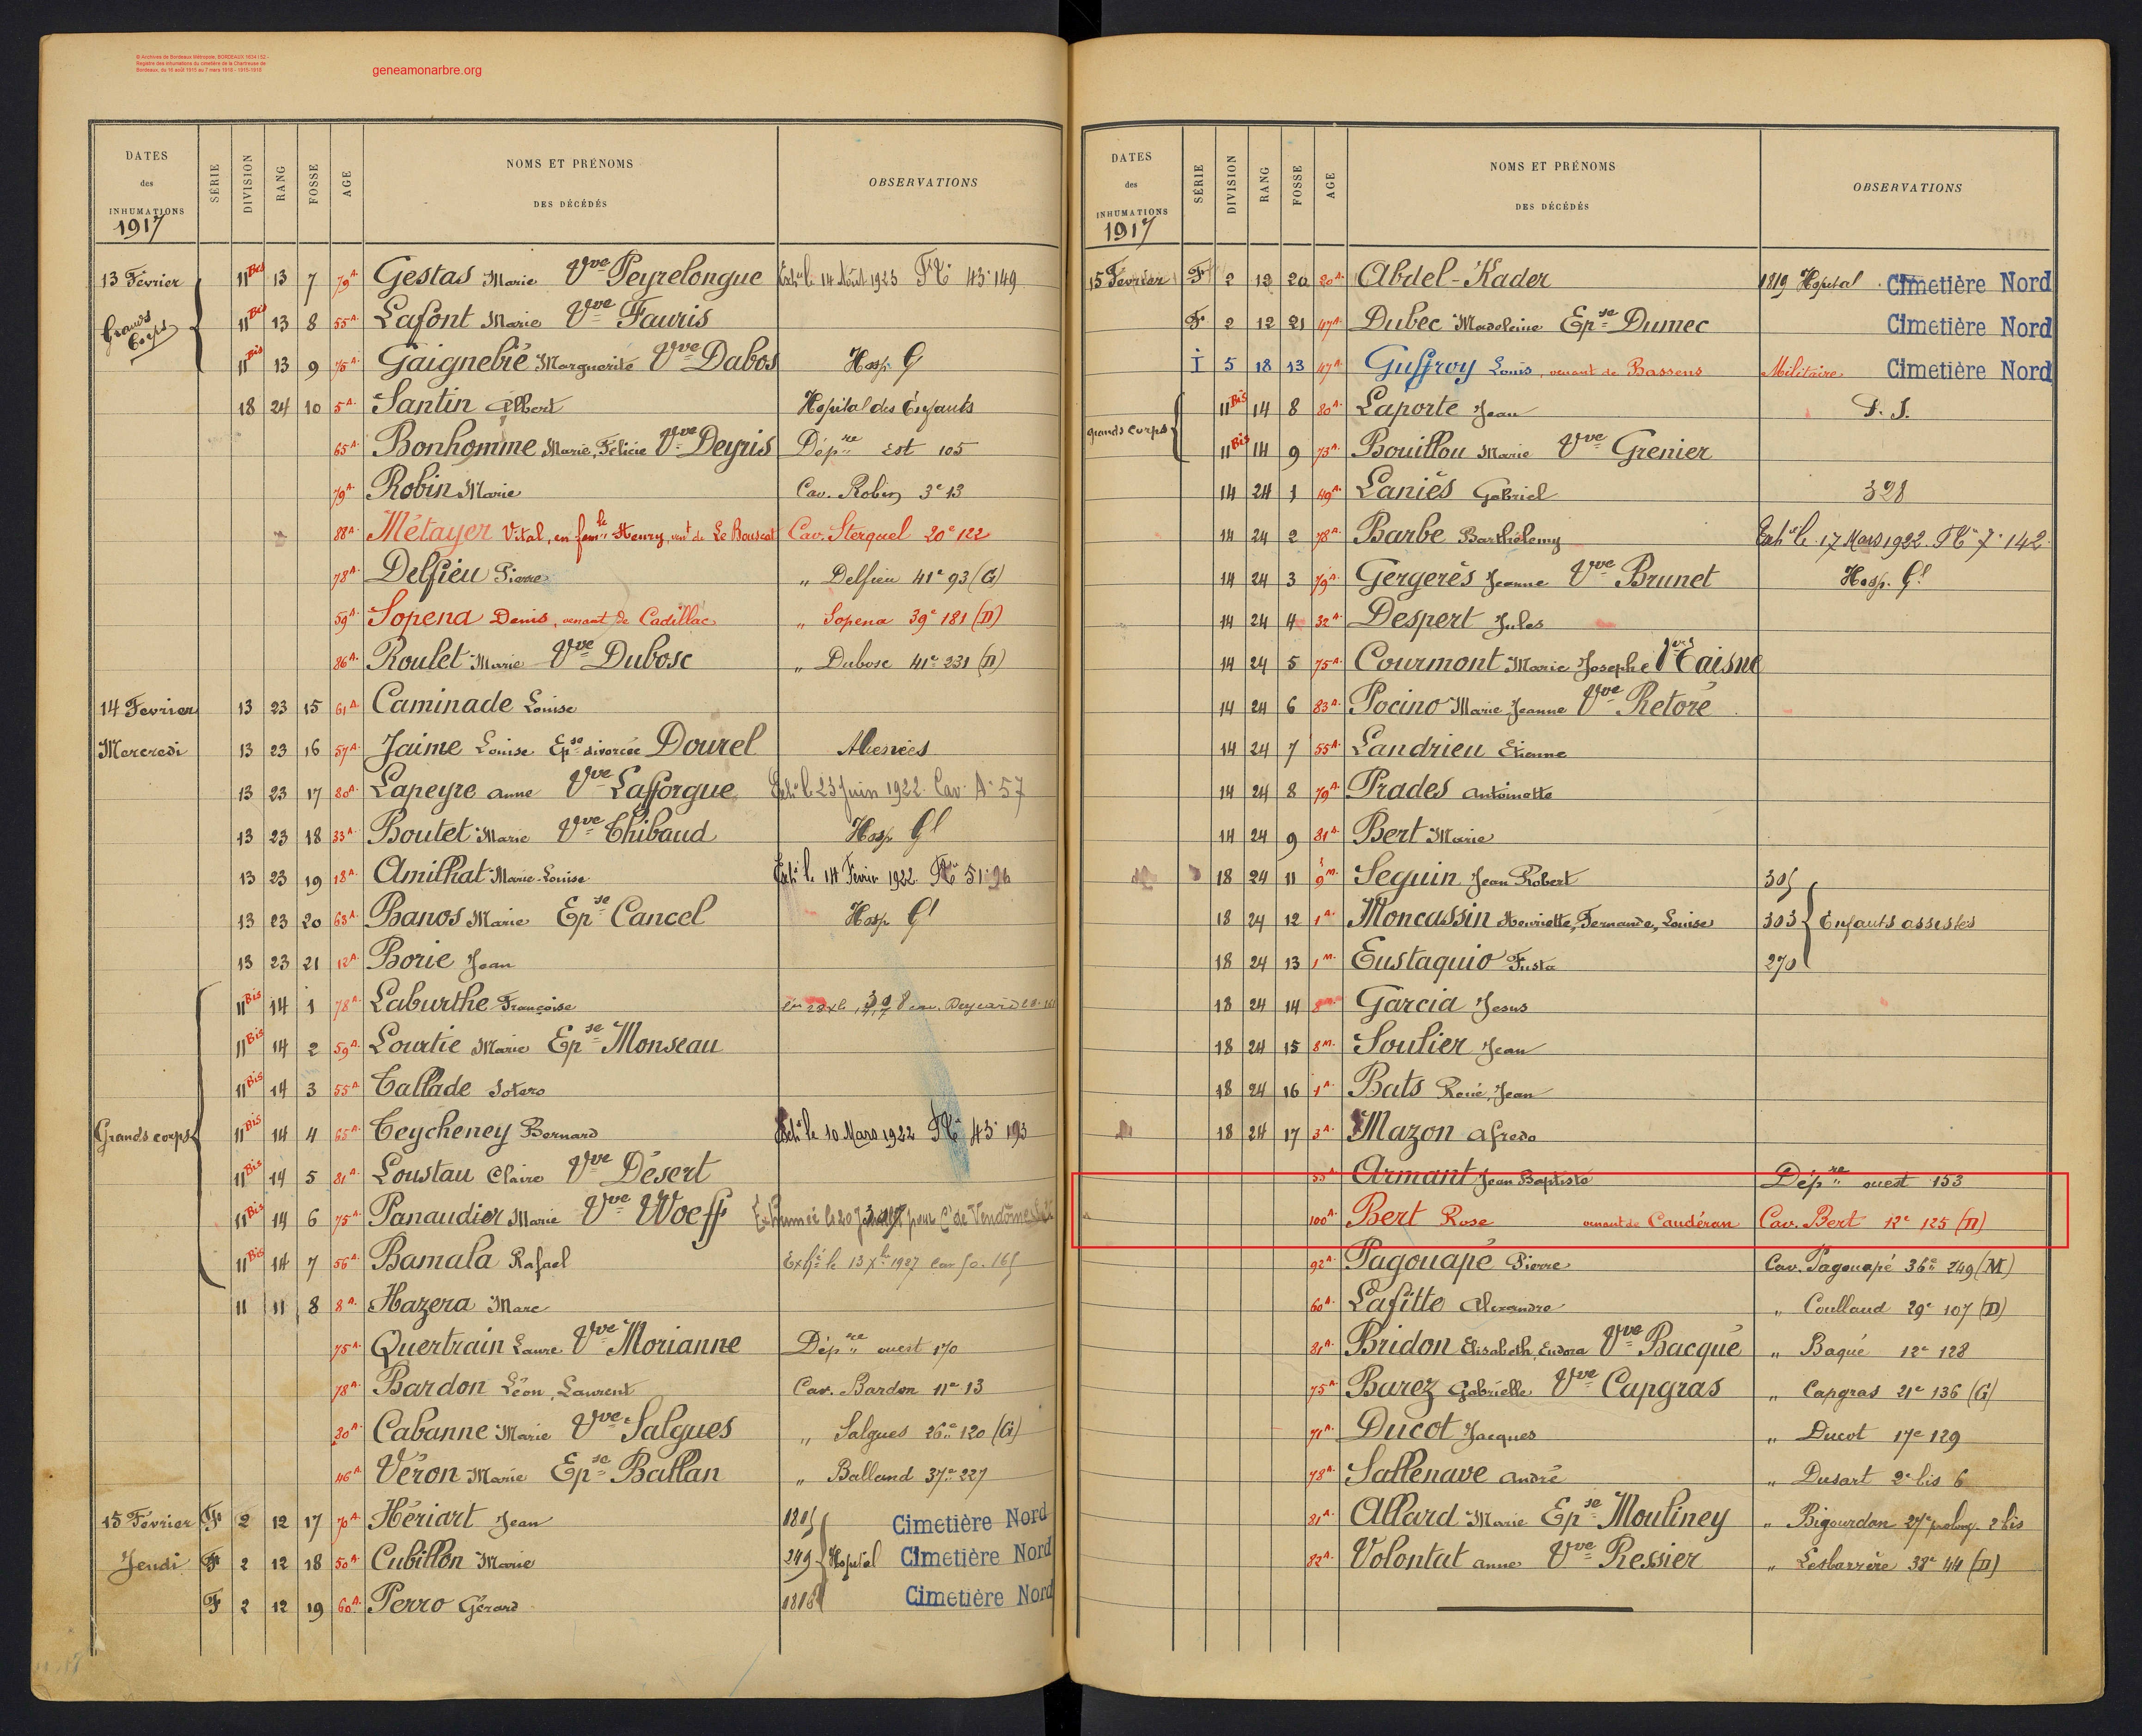 © Archives de Bordeaux Métropole, BORDEAUX 1634 I 52 -
Registre des inhumations du cimetière de la Chartreuse de
Bordeaux, du 16 août 1915 au 7 mars 1918 - 1915-1918
geneamonarbre.org
DATES des INHUMATIONS SÉRIE DIVISION RANG FOSSE AGE NOMS ET PRÉNOMS DES DÉCÉDÉS OBSERVATIONS
1917
13 Février 11 Bis 13 7 79 A. Gestas Marie Vve Peyrelongue Exh. le 14 Août 1923 43 149
Grands Corps 11 Bis 13 8 55 A. Lafont Marie Vve Fauris
11 Bis 13 9 75 A. Gaignebié Marguerite Vve Dabos Hosp. G
18 24 10 5 A. Santin Albert Hopital des Enfants
65 A. Bonhomme Marie, Félicie Vve Deyris Dépre Est 105
79 A. Robin Marie Cav. Robin 3e 13
88 A. Métayer Vital, en famlle Henry, vent de Le Bouscat Cav. Sterquel 20e 122
78 A. Delfieu Pierre " Delfieu 41e 93 (G)
59 A. Sopena Denis, venant de Cadillac " Sopena 39e 181 (D)
86 A. Roulet Marie Vve Dubosc " Dubosc 41e 231 (D)
14 Fevrier 13 23 15 61 A. Caminade Louise
Mercredi 13 23 16 57 A. Jaime Louise Epse divorcée Dourel Alienées
13 23 17 80 A. Lapeyre Anne Vve Lafforgue le 23 Juin 1922 Cav. A. 57
13 23 18 33 A. Boutet Marie Vve Thibaud Hosp Gl
13 23 19 18 A. Amilhat Marie-Louise Exh. le 14 Février 1922 51 96
13 23 20 63 A. Banos Marie Epse Cancel Hosp Gl
13 23 21 12 A. Borie Jean
11 Bis 14 1 78 A. Laburthe Françoise
11 Bis 14 2 59 A. Lourtie Marie Epse Monseau
11 Bis 14 3 55 A. Tallade Sotero
Grands corps 11 Bis 14 4 65 A. Teycheney Bernard Exh. le 10 Mars 1922 43 193
11 Bis 14 5 81 A. Loustau Claire Vve Désert
11 Bis 14 6 75 A. Panaudier Marie Vve Woeff pour Ct de Vendôme
11 Bis 14 7 56 A. Bamala Rafael Exhé le 13 Xbre 1927
11 11 8 8 A. Hazera Marc
75 A. Quertrain Laure Vve Morianne Dépre ouest 170
78 A. Bardon Léon, Laurent Cav. Bardon 11e 13
80 A. Cabanne Marie Vve Salgues " Salgues 26e 120 (G)
46 A. Véron Marie Epse Ballan " Balland 37e 227
15 Fevrier F 2 12 17 70 A. Hériart Jean Cimetière Nord
Jeudi F 2 12 18 50 A. Cubillon Marie 249 Hopital Cimetière Nord
F 2 12 19 60 A. Perro Gérard 1818 Cimetière Nord
DATES des INHUMATIONS SÉRIE DIVISION RANG FOSSE AGE NOMS ET PRÉNOMS DES DÉCÉDÉS OBSERVATIONS
1917
15 Fevrier F 2 12 20 20 A. Abdel-Kader 1819 Hopital Cimetière Nord
F 2 12 21 47 A. Dubec Madeleine Epse Dumec Cimetière Nord
I 5 18 13 47 A. Guffroy Louis, venant de Bassens Militaire Cimetière Nord
grands corps 11 Bis 14 8 80 A. Laporte Jean
11 Bis 14 9 73 A. Bouillou Marie Vve Grenier
14 24 1 49 A. Laniès Gabriel 328
14 24 2 78 A. Barbe Barthélemy Exh. le 17 Mars 1922 7 142
14 24 3 79 A. Gergerès Jeanne Vve Brunet Hosp. Gl
14 24 4 32 A. Despert Jules
14 24 5 75 A. Courmont Marie Josephe Vve Caisne
14 24 6 83 A. Pocino Marie Jeanne Vve Retoré
14 24 7 55 A. Landrieu Etienne
14 24 8 79 A. Prades Antoinette
14 24 9 81 A. Bert Marie
18 24 11 9 m. Seguin Jean Robert 305
18 24 12 1 A. Moncassin Henriette, Fernande, Louise 303 Enfants assistés
18 24 13 1 m. Eustaquio Fusta 270
18 24 14 8 m. Garcia Jesus
18 24 15 8 m. Soulier Jean
18 24 16 1 A. Bats René, Jean
18 24 17 3 A. Mazon Alfredo
55 A. Armant Jean Baptiste Dépre ouest 153
100 A. Bert Rose venant de Caudéran Cav. Bert 12e 125 (D)
92 A. Pagouapé Pierre Cav. Pagouapé 36e 249 (M)
60 A. Lafitte Alexandre " Coulland 29e 107 (D)
81 A. Bridon Elisabeth, Eudora Vve Bacqué " Baqué 12e 128
75 A. Barez Gabrielle Vve Capgras " Capgras 21e 136 (G)
71 A. Ducot Jacques " Ducot 17e 129
78 A. Sallenave André " Dusart 2e bis 6
81 A. Allard Marie Epse Mouliney " Bigourdan 27e prolong. 2 bis
82 A. Volontat Anne Vve Ressier " Lesbarrère 38e 44 (D)